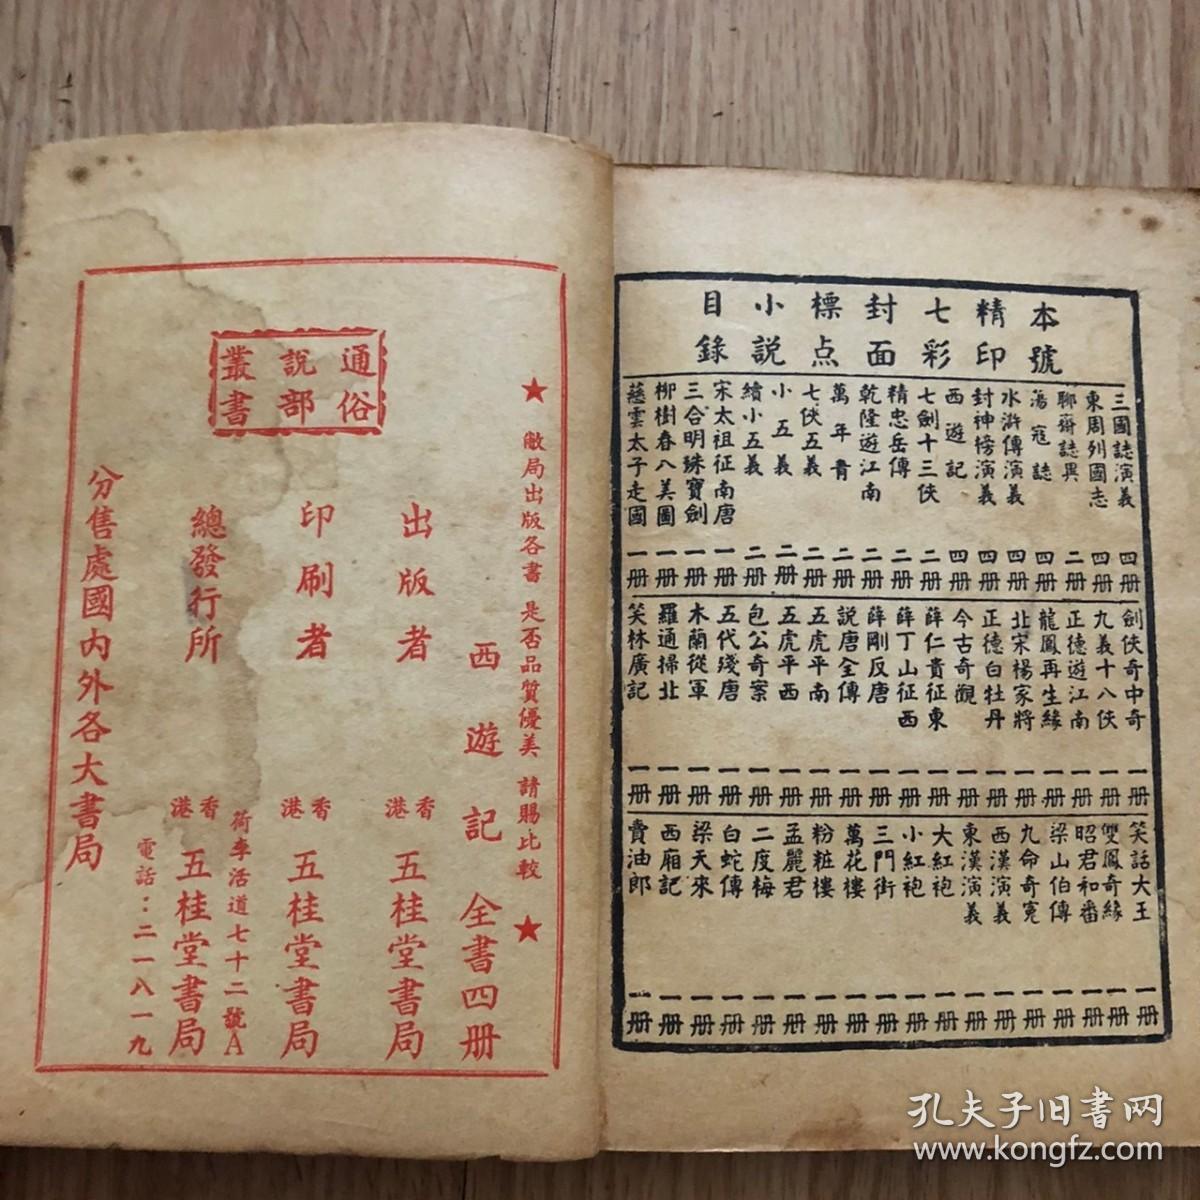 本號精印七彩封面標点小説目錄
三國誌演義 四册
東周列國志 四册
聊齋誌異 二册
蕩寇誌 四册
水滸傳演義 四册
封神榜演義 四册
西遊記 四册
七劍十三俠 二册
精忠岳傳 二册
乾隆遊江南 二册
萬年青 二册
七俠五義 二册
小五義 二册
續小五義 二册
宋太祖征南唐 一册
三合明珠寶劍 一册
柳樹春八美圖 一册
慈雲太子走國 一册
劍俠奇中奇 一册
九義十八俠 一册
正德遊江南 一册
龍鳳再生緣 一册
北宋楊家將 一册
正德白牡丹 一册
今古奇觀 一册
薛仁貴征東 一册
薛丁山征西 一册
薛剛反唐 一册
説唐全傳 一册
五虎平南 一册
五虎平西 一册
包公奇案 一册
五代殘唐 一册
木蘭從軍 一册
羅通掃北 一册
笑林廣記 一册
笑話大王 一册
雙鳳奇緣 一册
昭君和番 一册
梁山伯傳 一册
九命奇寃 一册
西漢演義 一册
東漢演義 一册
大紅袍 一册
小紅袍 一册
三門街 一册
萬花樓 一册
粉粧樓 一册
孟麗君 一册
二度梅 一册
白蛇傳 一册
梁天來 一册
西廂記 一册
賣油郎 一册
★敝局出版各書 是否品質優美 請賜比較★
西遊記 全書四册
出版者 香港 五桂堂書局
印刷者 香港 五桂堂書局
荷李活道七十二號A
總發行所 香港 五桂堂書局
電話:二一八一九
分售處國内外各大書局
通俗
説部
叢書
孔夫子旧书网
www.kongfz.com